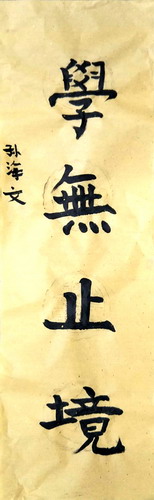 學無止境
孙海文